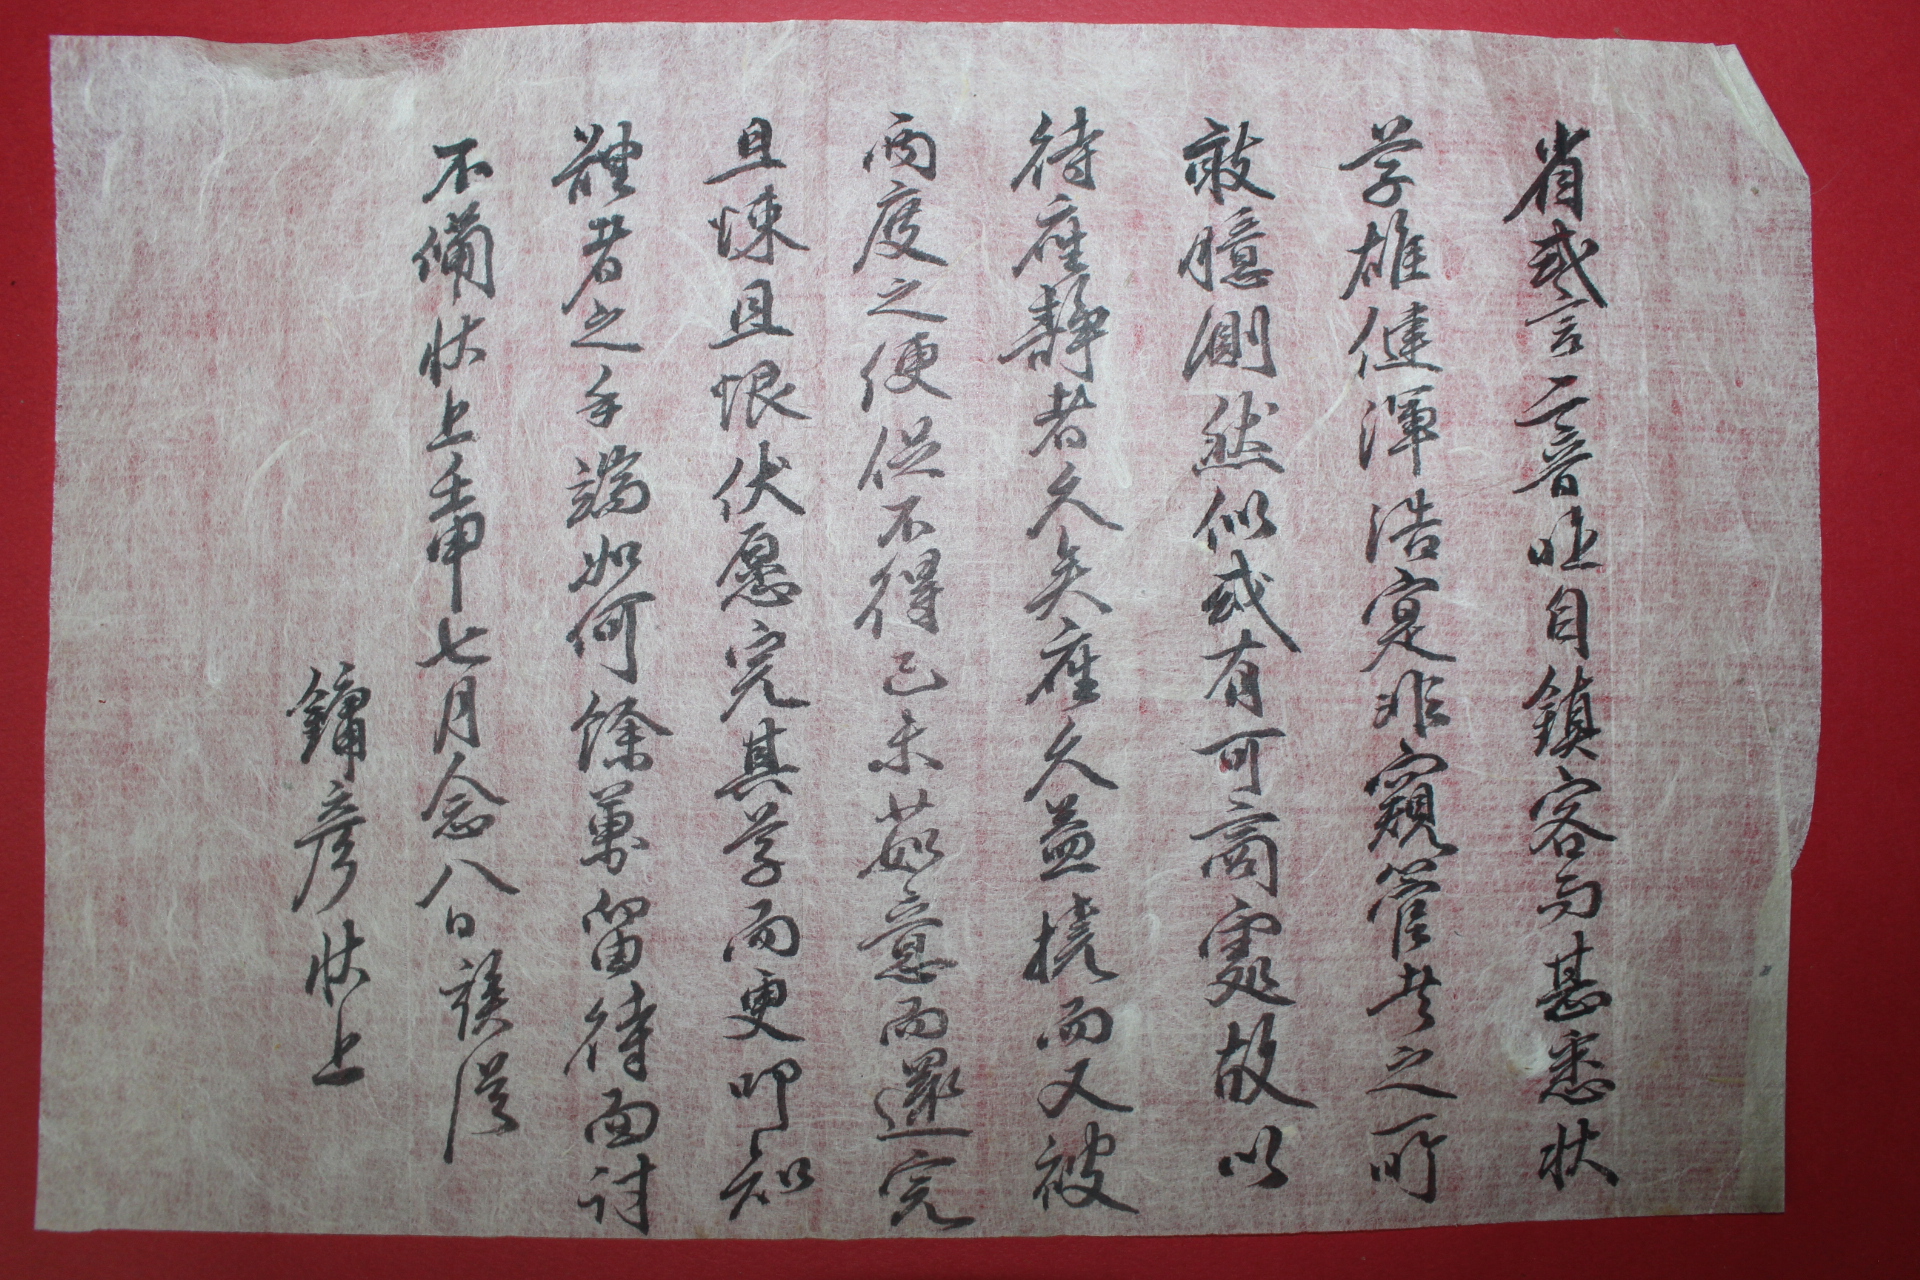 省或言二音旺自鎮客而甚悉狀
学雄健渾浩寔非窺管者之所
敢臆測然似或有可商處故以
待座靜者久矣座久益撓而又被
兩度之便促不得已未茹意而還完
且悚且恨伏愿完其学而更叩知
體者之手論如何餘萬留待面討
不備狀上壬申七月念八日
鏞彦狀上